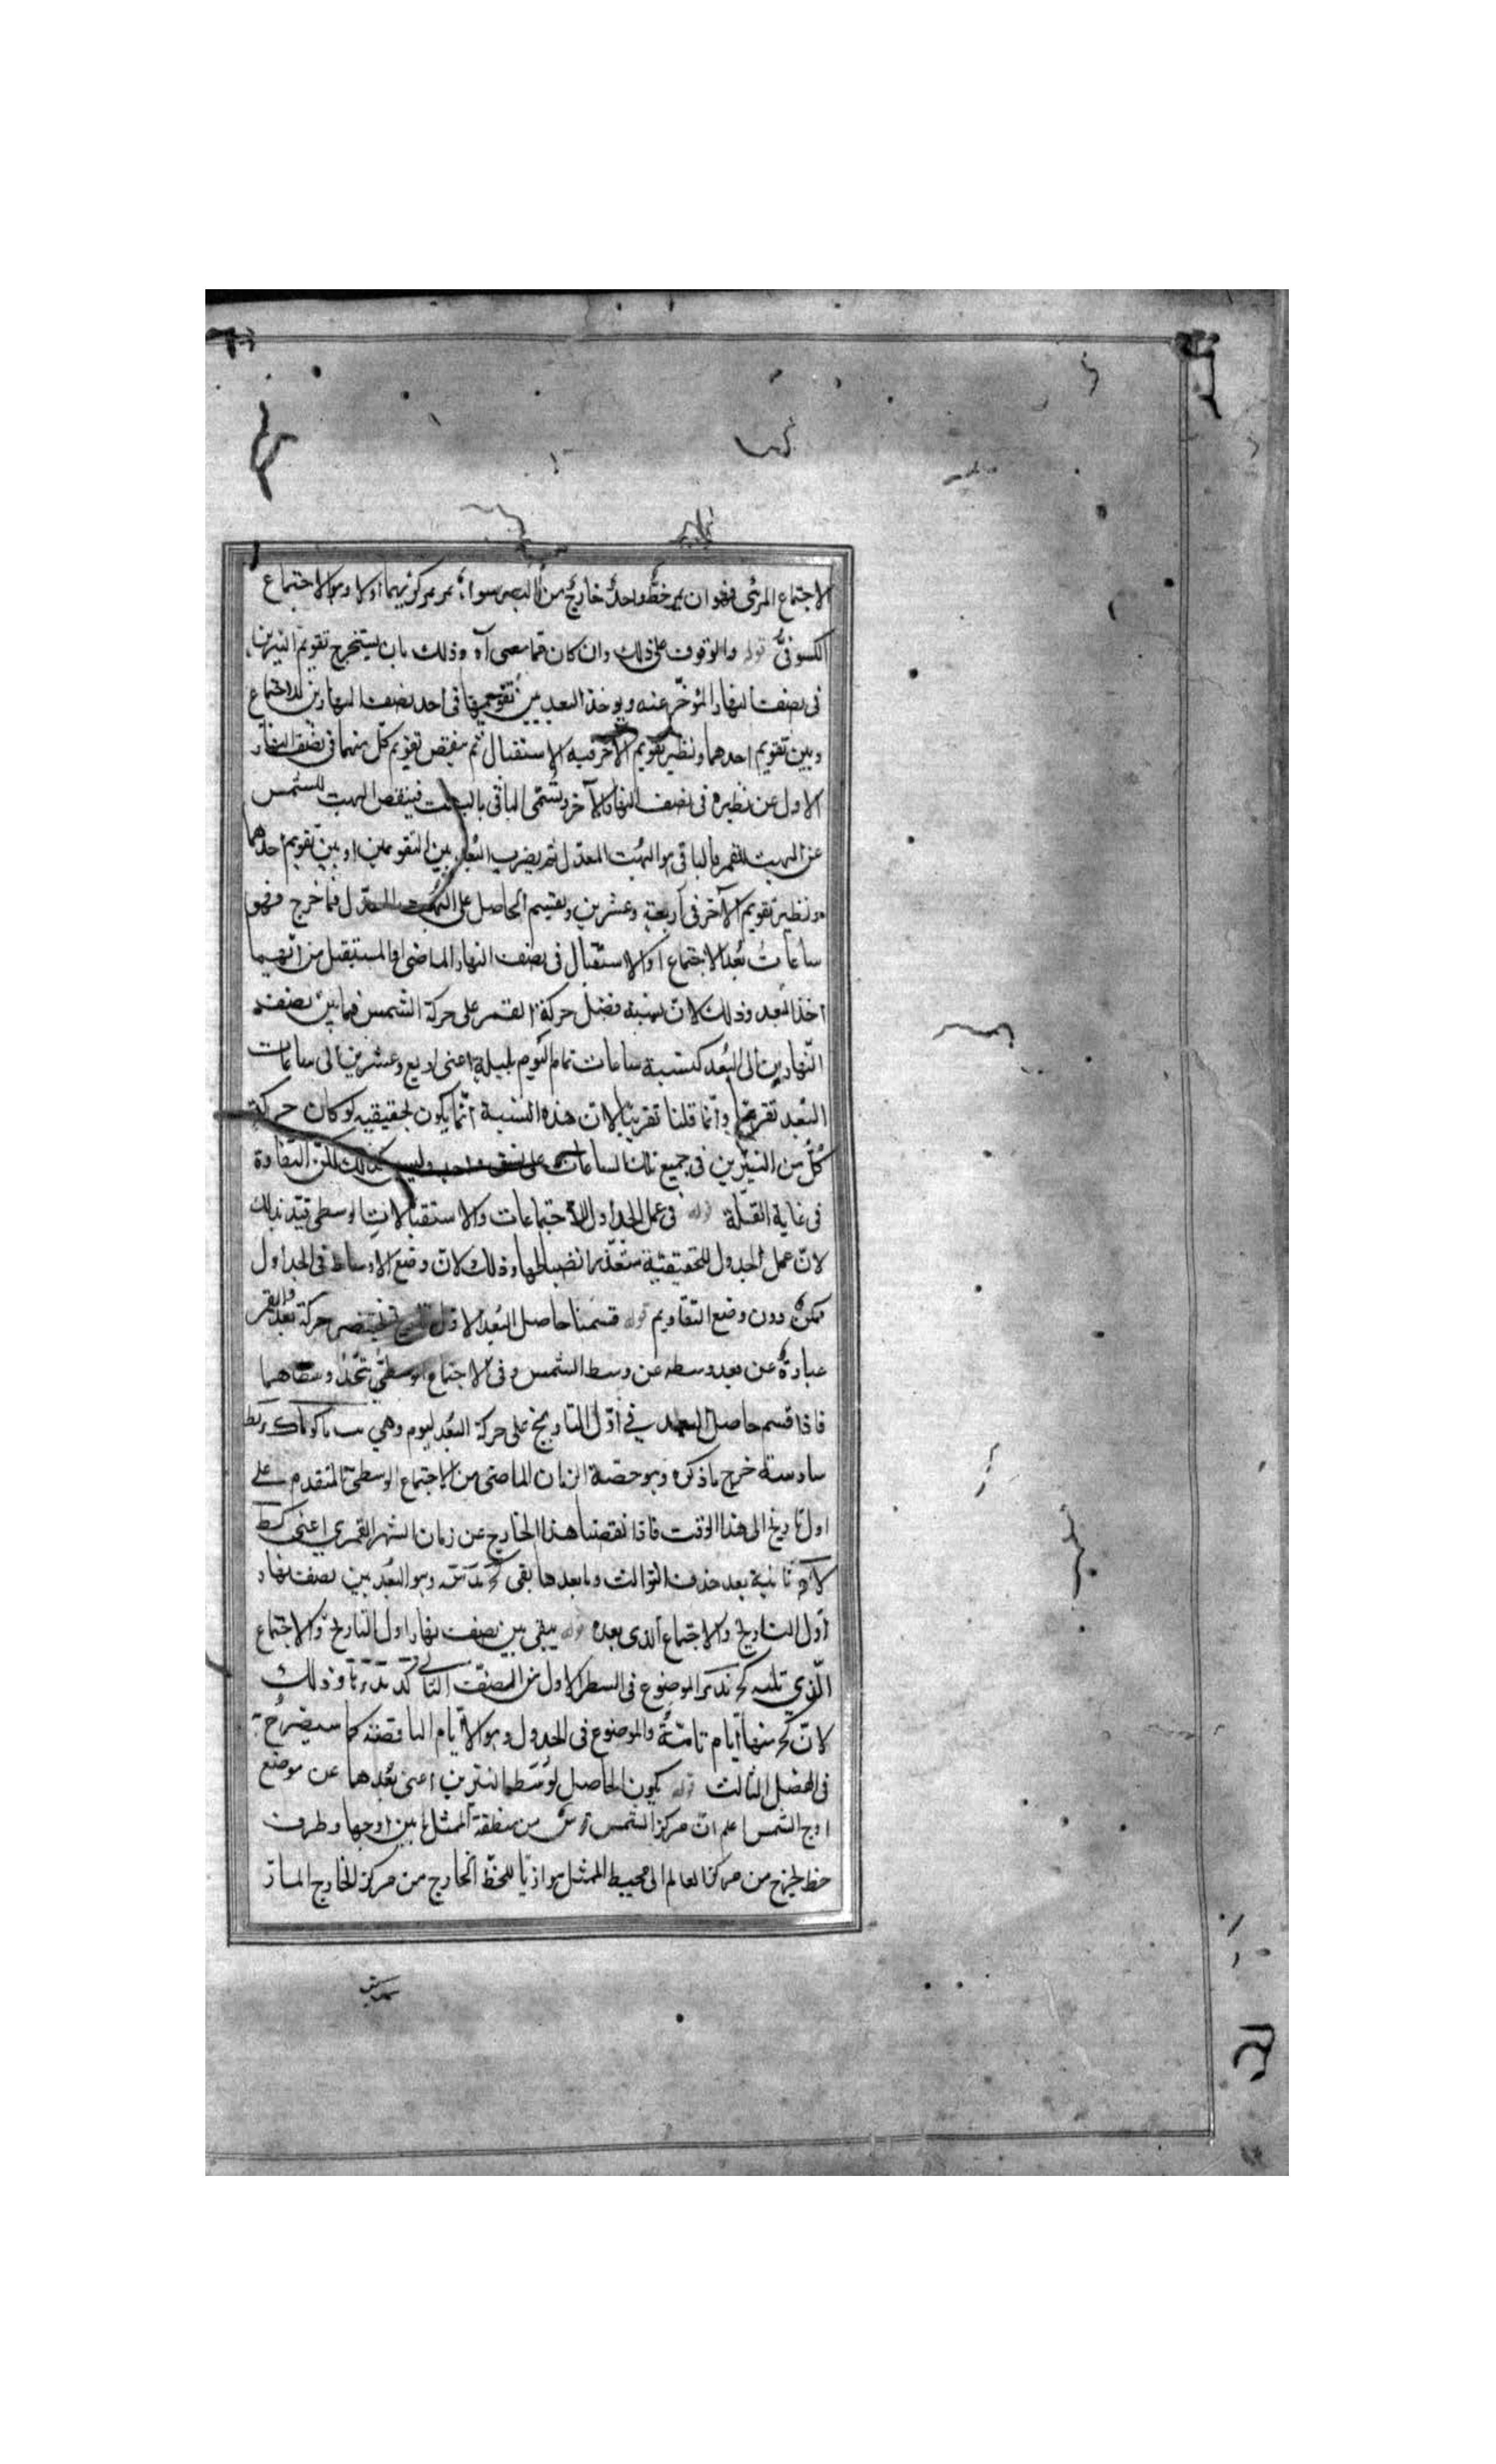 الاجتماع المرئى فهو ان يمر خط واحد خارج من البصر سواء مر بمركزيهما اولا وهو الاجتماع
الكسوفىّ قوله والوقوف على ذلك وان كان فما معنى آه وذلك بان يستخرج تقويم النيرين
فى نصف النهار المؤخّر عنه ويوخذ البعد بين تقويميها فى احد نصف النهارين للاجتماع
وبين تقويم احدهما ونظير تقويم الآخر فيه للاستقبال ثم ينقص تقويم كل منهما فى نصف النهار
الاول عن نظيره فى نصف النهار الآخر ويسمّى الباقى بالبهت فينقص البهت للشمس
عن البهت للقمر فالباقى هو البهت المعدّل ثم يضرب البعد بين التقويمين او بين تقويم احدهما
ونظير تقويم الآخر فى اربعة وعشرين ويقسم الحاصل على البهت المعدّل فما خرج فهو
ساعات بُعد الاجتماع او الاستقبال فى نصف النهار الماضى او المستقبل من ايهما
اخذ البعد وذلك لان نسبة فضل حركة القمر على حركة الشمس فيما بين نصف
النّهارين الى البُعد كنسبة ساعات تمام اليوم بليلة اعنى اربع وعشرين الى ساعات
البُعد تقريبا وانّما قلنا تقريبا لان هذه النسبة انّما يكون لحقيقيه لو كان حركة
كُلّ من النيّرين فى جميع تلك الساعات على نسق واحد وليس كذلك لكنّ التفاوة
فى غاية القلّة قوله فى عمل الجداول الاجتماعات والاستقبالات الوسطى قيّد بذلك
لانّ عمل الجدول للحقيقيّة متعذّر انضباطها وذلك لانّ وضع الاوساط فى الجداول
ممكن دون وضع التقاويم قوله قسمنا حاصل البُعد الاول حركة بعد القمر
عبارة عن بعد وسطه عن وسط الشمس وفى الاجتماع الوسطىّ يتّحد وسطاهما
فاذا قسم حاصل البعد في اوّل التاريخ على حركة البُعد ليوم وهي
سادسة خرج ما ذكره وهو حصّة الزمان الماضى من الاجتماع الوسطى المتقدم على
اول تاريخ الى هذا الوقت فاذا نقصنا هذا الخارج عن زمان الشهر القمري اعنى كط
ثانية بعد حذف الثوالث وما بعدها بقى وهو البُعد بين نصف نهار
اوّل التاريخ والاجتماع الذى بعده قوله يبقى بين نصف نهار اول التاريخ والاجتماع
الّذي الموضوع فى السطر الاول من وذلك
لانّ منها ايّام تامّة والموضوع فى الجدول وهو الايّام الناقصة كما سيصرّح به
فى الفصل الثالث قوله يكون الحاصل لوسط النيّرين اعنى بُعدهما عن موضع
اوج الشمس اعلم انّ مركز الشمس قوس من منطقة الممثل ما بين اوجها وطرف
خط يخرج من مركز العالم الى محيط الممثل موازيًا للخطّ الخارج من مركز الخارج المارّ